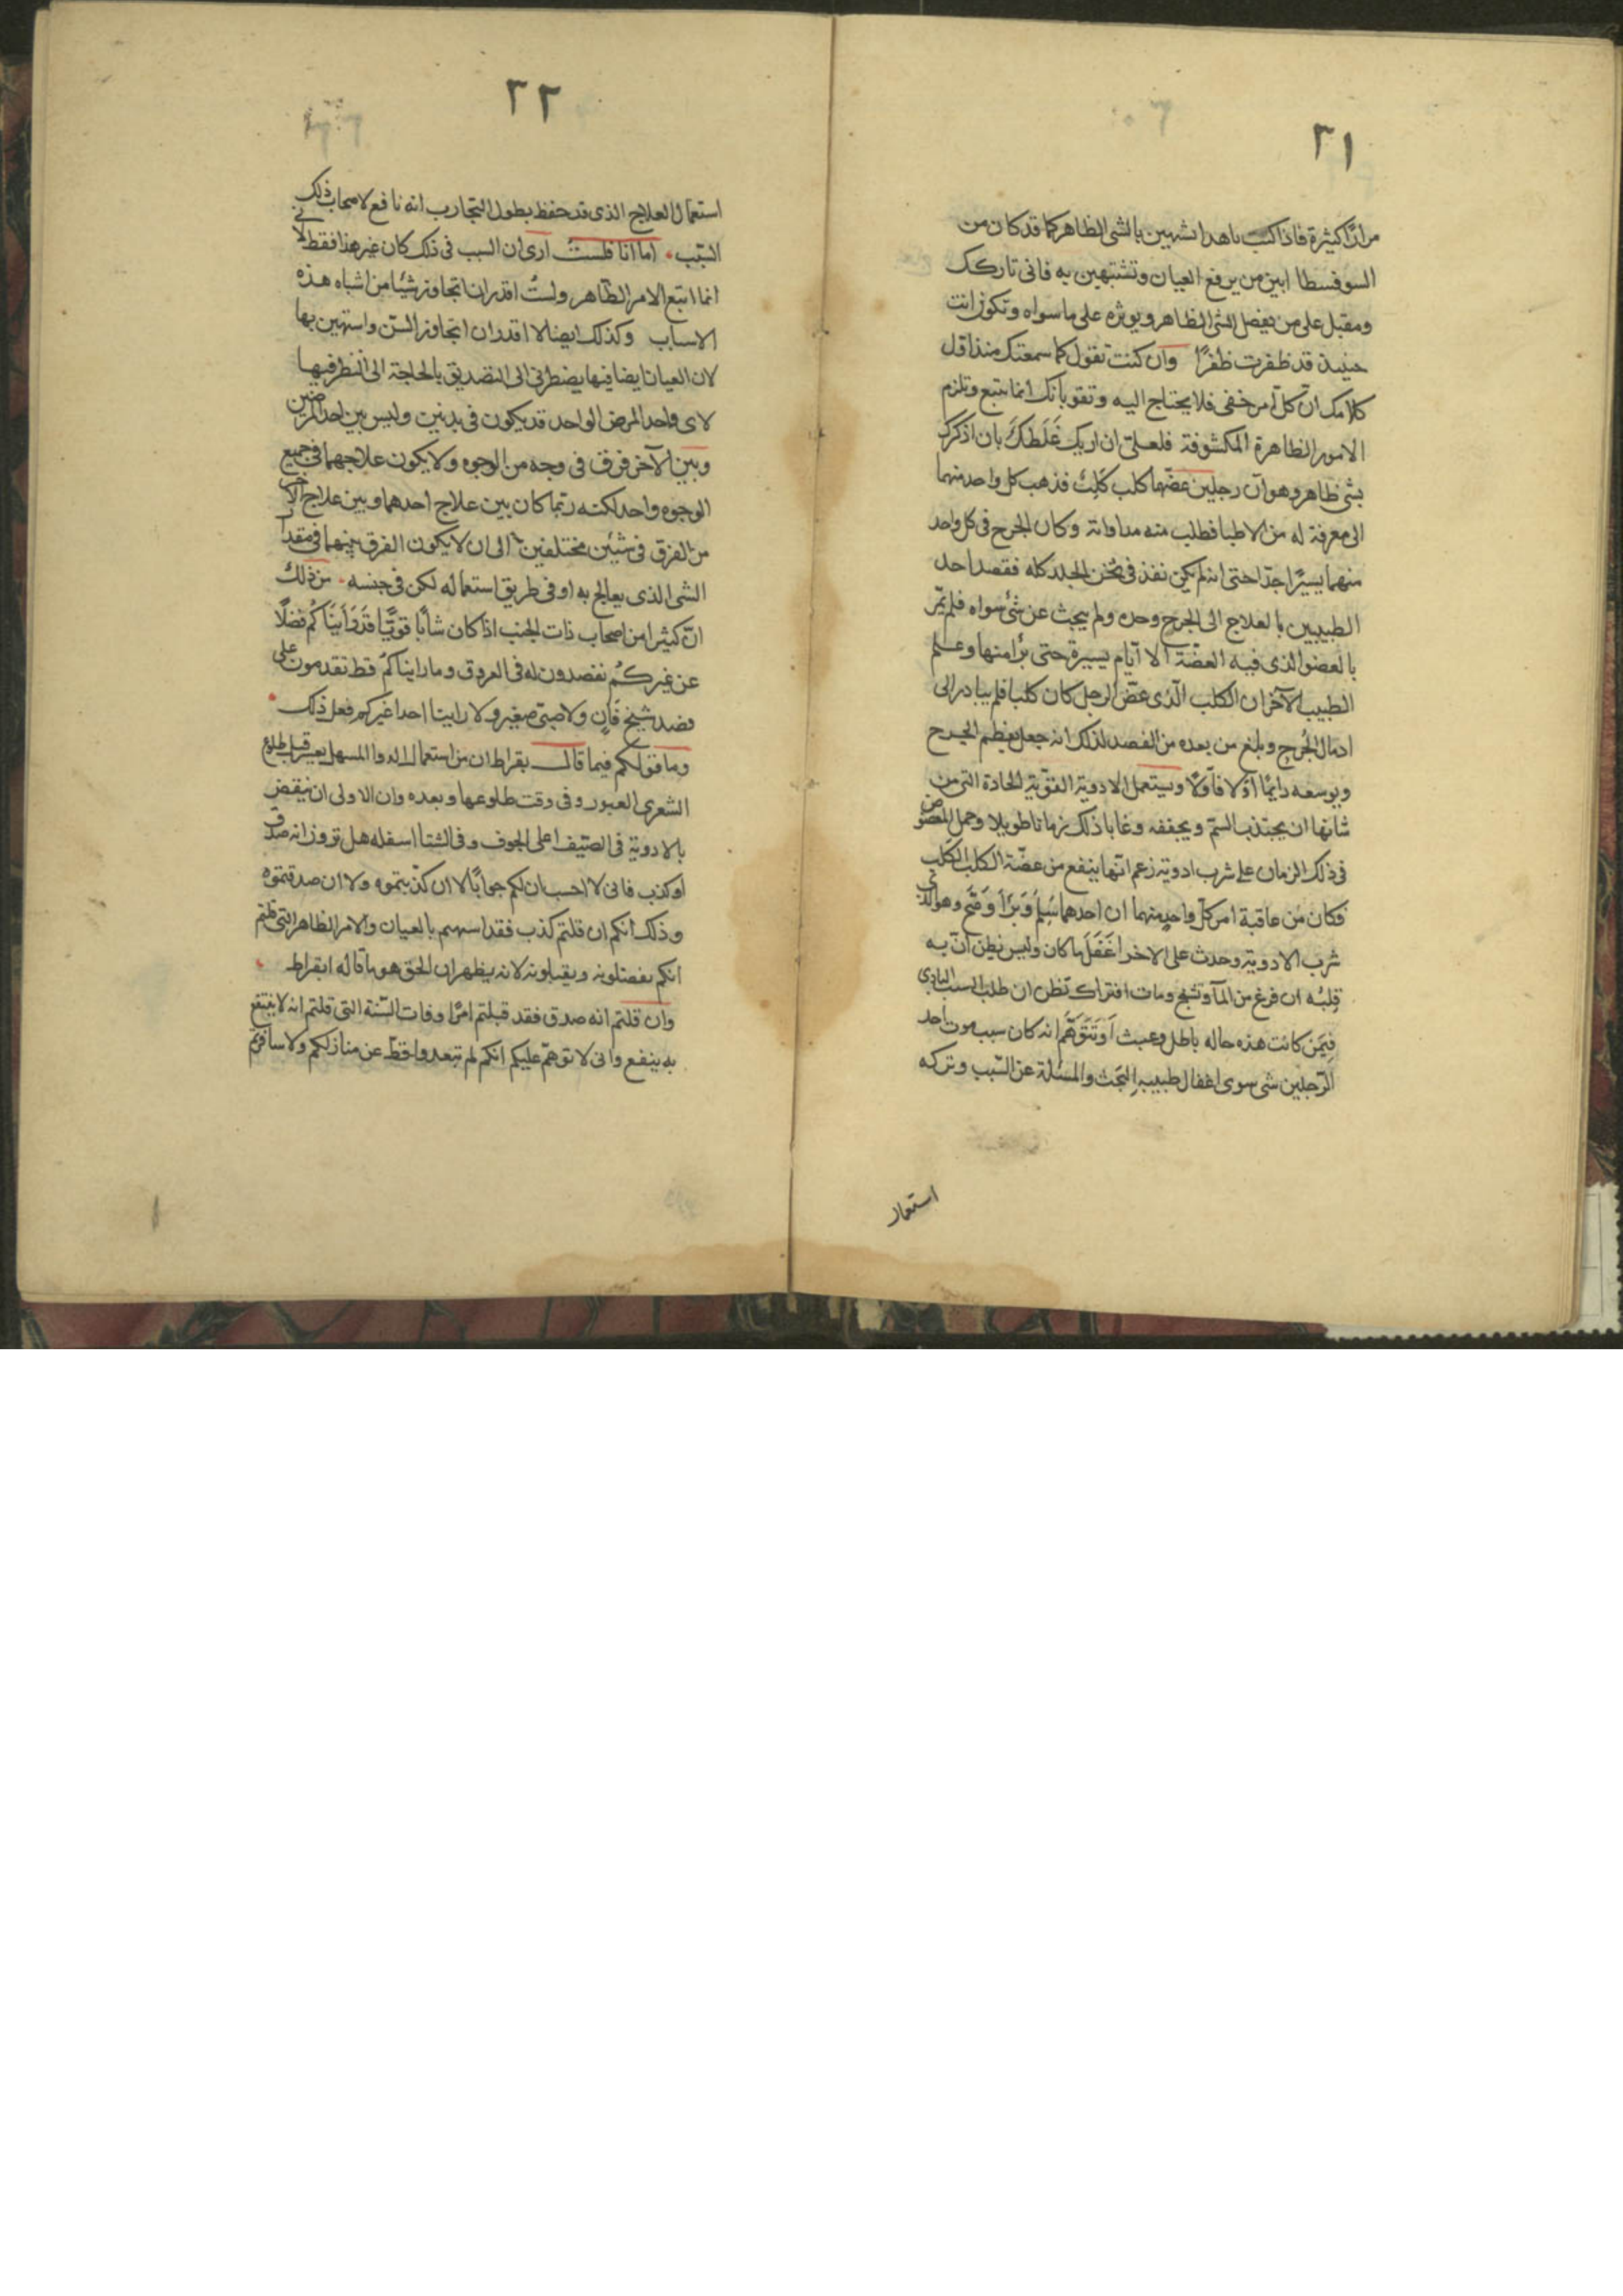 ٣١
مرارًا كثيرة فاذا كنت باهدا تشهين بالشى الظاهر كما قد كان من
السوفسطا ابين من يرفع العيان وتشتهين به فانى تاركك
ومقبل على من يفضل الشى الظاهر ويوثره على ما سواه وتكون انت
حينيذ قد ظفرت ظفرًا وان كنت تقول كما سمعتك منذ اقل
كلامك ان كل امر خفى فلا يحتاج اليه وتقو بانك انما تتبع وتلزم
الامور الظاهرة المكشوفة فلعلى ان اريك غَلَطَكَ بان اذكرك
بشى ظاهر وهو ان رجلين عضّهما كلب كَلِبٌ فذهب كل واحد منهما
الى معرفة له من الاطبا فطلب منه مداواته وكان الجرح فى كل واحد
منهما يسيرًا جدّا حتى انه لم يكن نفذ فى ثخن الجلد كله فقصد احد
الطبيبين بالعلاج الى الجرح وحده ولم يبحث عن شئ سواه فلم تمر
بالعضو الذى فيه العضّة الا ايّام يسيرة حتى برا منها وعلم
الطبيب الآخر ان الكلب الّذى عضّ الرجل كان كلبا فلم يبادر الى
ادمال الجُرح وبلغ من بعده من القصد لذلك انه جعل يعظم الجرح
ويوسعه دايمًا اوّلا فاوّلا ويستعمل الادوية القوّية الحادة التى من
شانها ان يجتذب السمّ ويجففه وغابا ذلك زمانا طويلا وحمل المعضوض
فى ذلك الزمان على شرب ادوية زعم انّها ينفع من عضّة الكلب الكَلب
فكان من عاقبة امر كلّ واحدٍ منهما ان احدهما سَلِمَ وَبَرَأ وَصَحّ وهو الذى
شرب الادوية وحدث على الاخر اغَفَلَ ما كان وليس نظن انّ به
قِلبُه ان فرغ من المآ وتشنج ومات افتراك تظن ان طلب السبب البادى
فِيمَن كانت هذه حاله باطل وعبث اَوتَتَوَهَّم انه كان سبب موت احد
الرّجلين شى سوى اغفال طبيبهِ البَحث والمسئلة عن السّبب وتركه
استعمال
٣٢
استعمال العلاج الذى قد حفظ بطول التجارب انه نافع لاصحاب ذلك
السّبب اما انا فلستُ ارى ان السبب فى ذلك كان غير هذا فقط لانى
انما اتبع الامر الظّاهر ولستُ اقدر ان اتجاوز شيئا من اشباه هذه
الاسباب وكذلك ايضا لا اقدر ان اتجاوز السنّ واستهين بها
لان العيان ايضا فيها يضطرنى الى التصديق بالحاجة الى النظر فيها
لاى واحد المرض الواحد قد يكون فى بدنين وليس بين احد المرضين
وبين الآخر فرق فى وجه من الوجوه ولا يكون علاجهما فى جميع
الوجوه واحد لكنه ربّما كان بين علاج احدهما وبين علاج الاخر
من الفرق فى شيئين مختلفين الى ان لا يكون الفرق بينهما فى مقدار
الشى الذى يعالج به او فى طريق استعماله لكن فى جنسه من ذلك
انّ كثيرا من اصحاب ذات الجنب اذا كان شابًا قويًّا قَد رَأيَنَاكُم فضلًا
عن غيركُم تفصدون له فى العروق وما رايناكُم قط تقدمون على
فصد شيخ فَانٍ ولا صبىّ صغير ولا راينا احدا غيركم فعل ذلك
وما قولكم فيما قال بقراط ان من استعمال الدوا المسهل يعسر قبل طلوع
الشعرى العبور وفى وقت طلوعها وبعده وان الاولى ان ينقض
بالادوية فى الصّيف اعلى الجوف وفى الشتا اسفله هل ترون انه صدق
او كذب فانى لا احسب ان لكم جوابًا لا ان كذّبتموه ولا ان صدقتموه
وذلك انكم ان قلتم كذب فقد استهنتم بالعيان والامر الظاهر التى قلتم
انكم تفضلونه ويقبلونه لانه يظهر ان الحق هو ما قاله ابقراط
وان قلتم انه صدق فقد قبلتم امرًا وفات السّنة التى قلتم انه لا ينتفع
به ينفع وانى لا توهّم عليكم انكم لم تبعدوا قطّ عن منازلكم ولا سافرتم